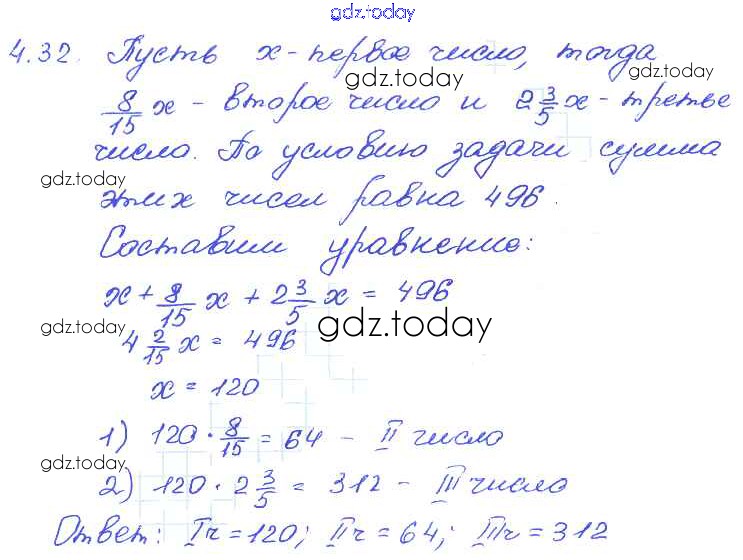 gdz.today
4.32. Пусть x - первое число, тогда
gdz.today
8/15 x - второе число и 2 3/5 x - третье
число. По условию задачи сумма
gdz.today
этих чисел равна 496.
Составим уравнение:
x + 8/15 x + 2 3/5 x = 496
gdz.today
gdz.today
4 2/15 x = 496
x = 120
1) 120 · 8/15 = 64 - II число
gdz.today
2) 120 · 2 3/5 = 312 - III число
Ответ: Iч = 120; IIч = 64; IIIч = 312
gdz.today